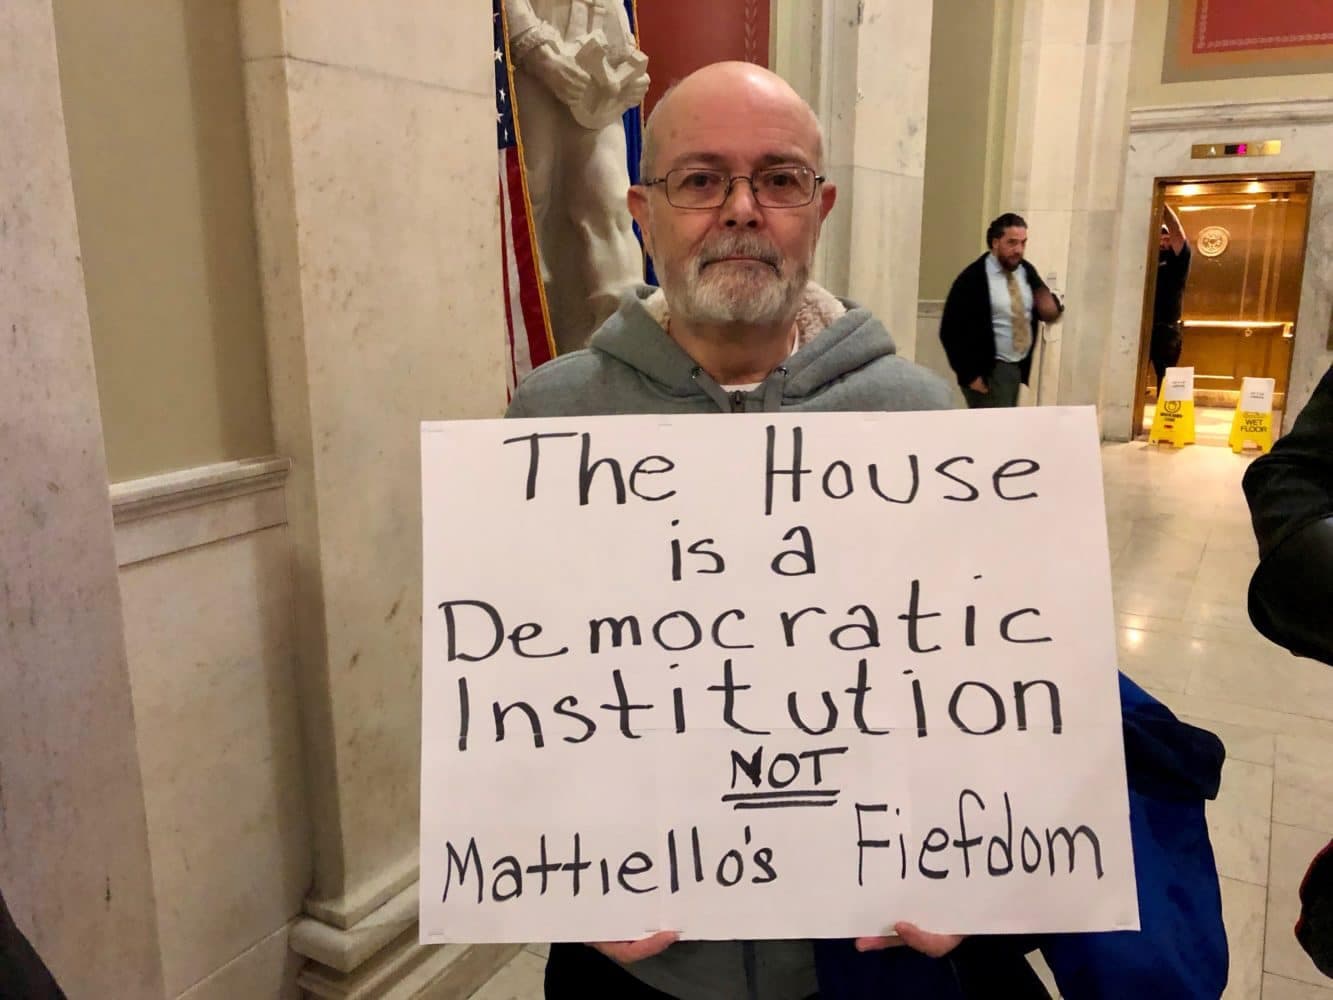 The House
is a
Democratic
Institution
NOT
Mattiello's Fiefdom
WET
FLOOR